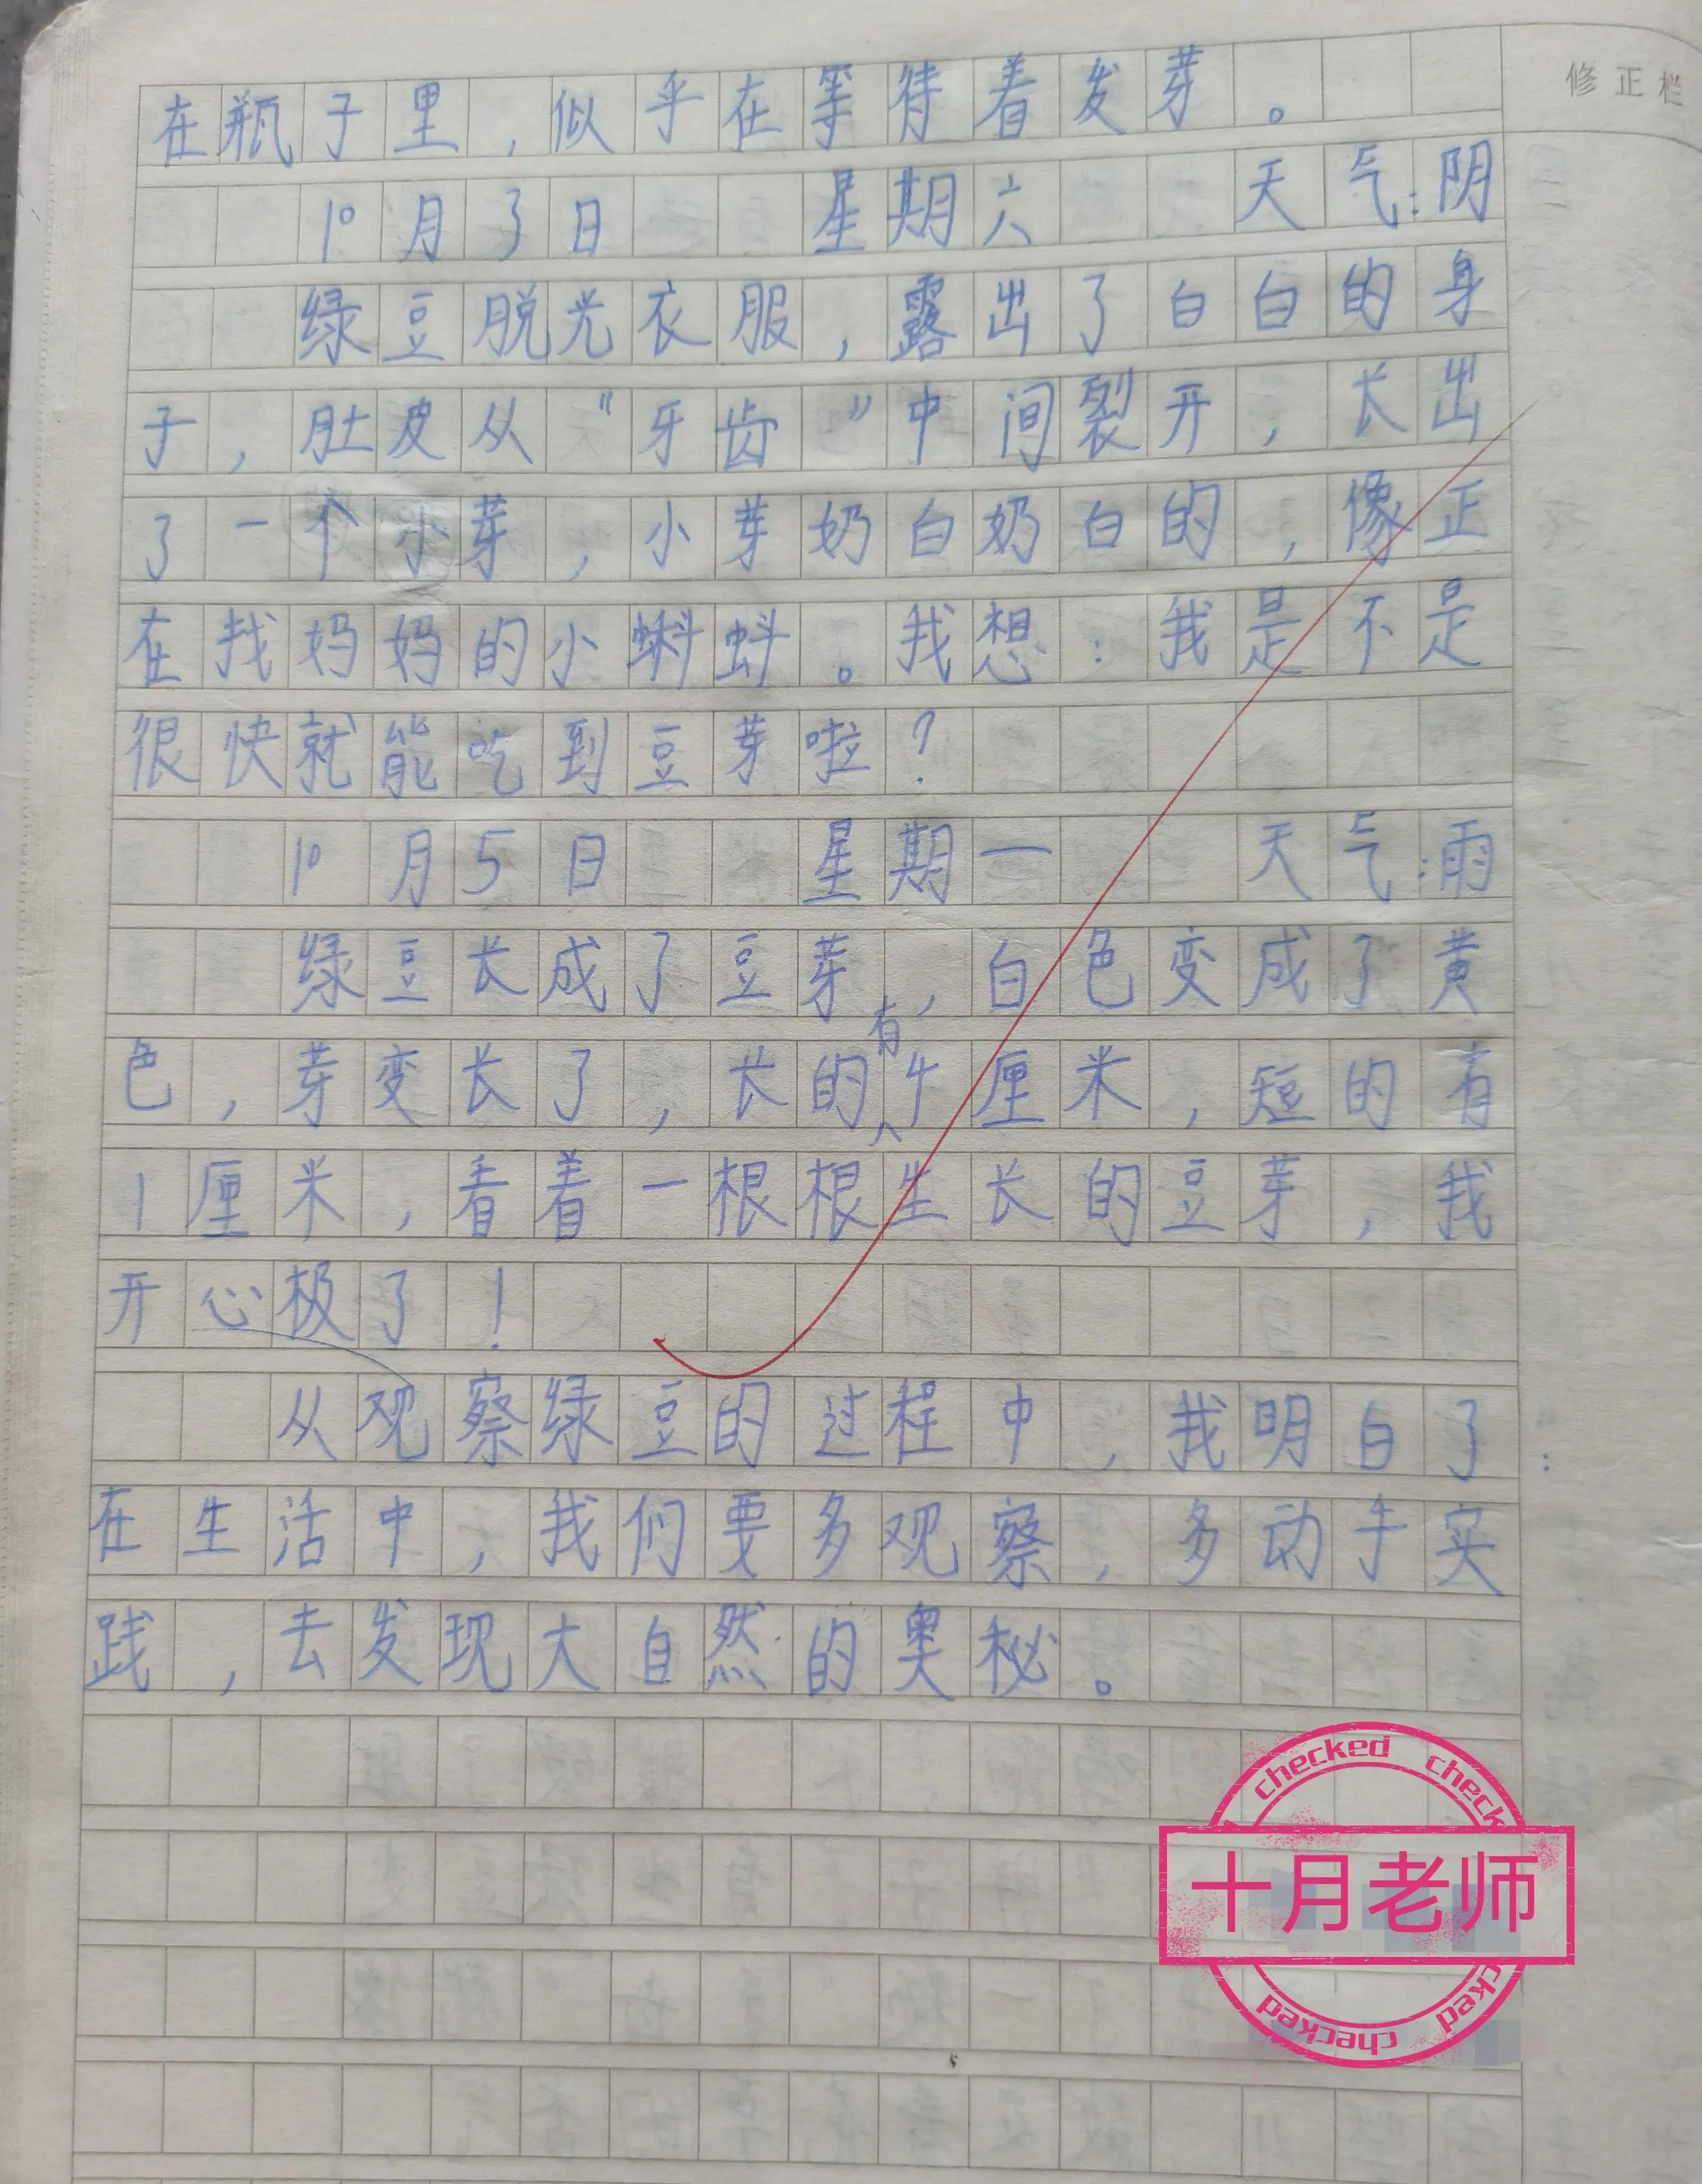 修正栏
在瓶子里，似乎在等待着发芽。
10月3日 星期六 天气：阴
绿豆脱光衣服，露出了白白的身
子，肚皮从“牙齿”中间裂开，长出
了一个小芽，小芽奶白奶白的，像正
在找妈妈的小蝌蚪。我想：我是不是
很快就能吃到豆芽啦？
10月5日 星期一 天气：雨
绿豆长成了豆芽，白色变成了黄
色，芽变长了，长的有4厘米，短的有
1厘米，看着一根根生长的豆芽，我
开心极了！
从观察绿豆的过程中，我明白了：
在生活中，我们要多观察，多动手实
践，去发现大自然的奥秘。
checked check
十月老师
cked checked checked